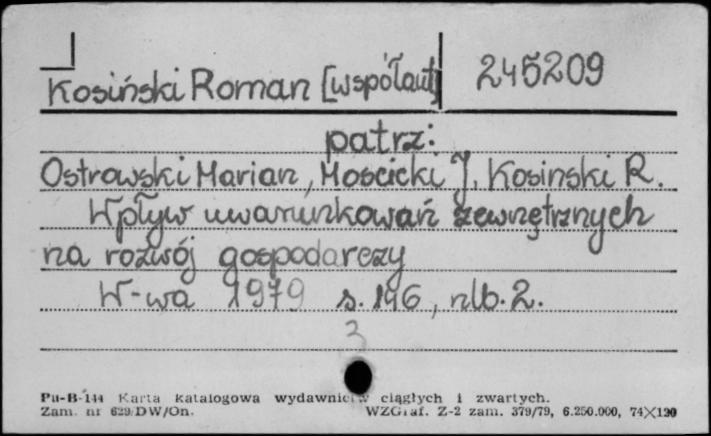 Kosiński Roman [współaut] 245209
patrz:
Ostrowski Marian, Mościcki J, Kosinski R.
Wpływ uwarunkowań zewnętrznych
na rozwój gospodarczy
W-wa 1979 s. 196, nlb. 2.
3
Pu-B-144 Karta katalogowa wydawnictw ciągłych i zwartych.
Zam. nr 629/DW/On. WZGraf. Z-2 zam. 379/79, 6.250.000, 74×120